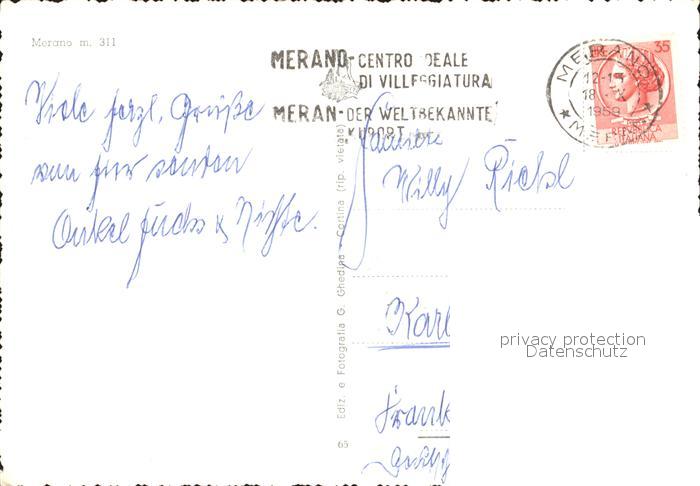 Merano m. 311
MERANO-CENTRO IDEALE
DI VILLEGGIATURA
MERAN-DER WELTBEKANNTE
KURORT
MERANO
12-1
18.
1959
35
REPUBBLICA
ITALIANA
Viele herzl. Grüße
von hier senden
Onkel Fuchs & Nichte.
Familie
Willy Riehl
Karl
Frank
Ediz. e Fotografia G. Ghedina - Cortina (rip. vietata)
65
privacy protection
Datenschutz